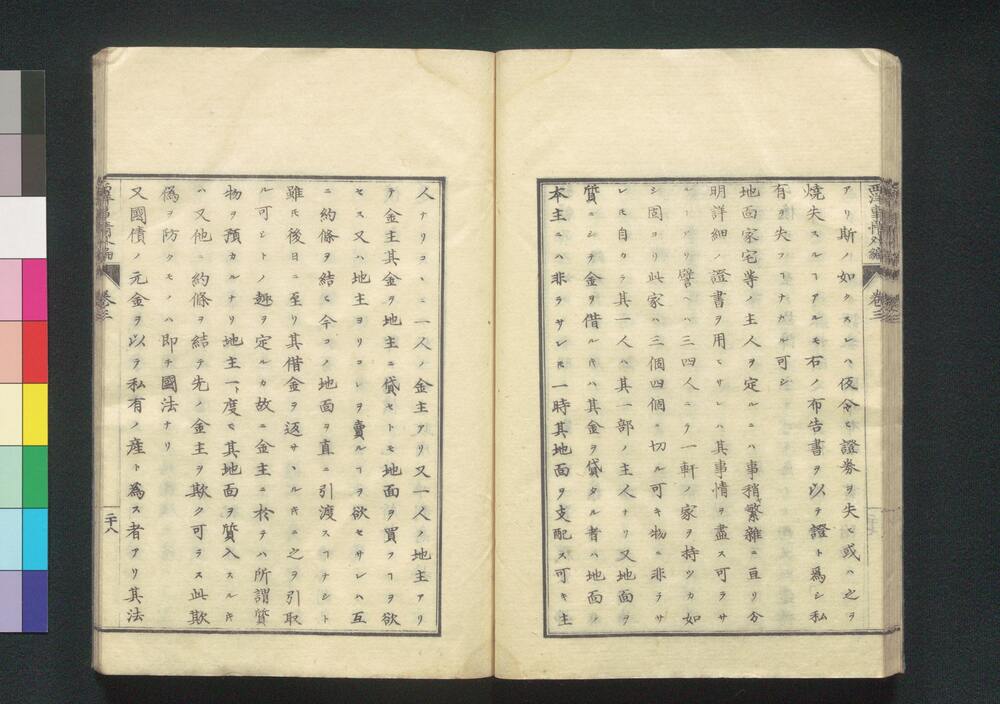 アリ斯ノ如クスレハ仮令ヒ證券ヲ失ヒ或ハ之ヲ
燒失スルヿアルモ右ノ布告書ヲ以テ證ト爲シ私
有ヲ失フヿナカル可シ
地面家宅等ノ主人ヲ定ルニハ事稍繁雜ニ亘リ分
明詳細ノ證書ヲ用ヒサレハ其事情ヲ盡ス可ラサ
ルヿアリ譬ヘハ三四人ニテ一軒ノ家ヲ持ツカ如
シ固ヨリ此家ハ三個四個ニ切ル可キ物ニ非ラサ
レ𪜈自カラ其一人ハ其一部ノ主人ナリ又地面ヲ
質ニシテ金ヲ借ル𪜈ハ其金ヲ貸タル者ハ地面ノ
本主ニハ非ラサレ𪜈一時其地面ヲ支配ス可キ主
人ナリコヽニ一人ノ金主アリ又一人ノ地主アリ
テ金主其金ヲ地主ニ貸セトモ地面ヲ買フヿヲ欲
セス又ハ地主ヨリコレヲ賣ルヿヲ欲セサレハ互
ニ約條ヲ結ヒ今コノ地面ヲ直ニ引渡スヿナシト
雖𪜈後日ニ至リ其借金ヲ返サヽルキニ之ヲ引取
ル可シトノ趣ヲ定ルカ故ニ金主ニ於テハ所謂質
物ヲ預カルナリ地主一ト度ヒ其地面ヲ質入スルキ
ハ又他ニ約條ヲ結テ先ノ金主ヲ欺ク可ラス此欺
僞ヲ防クモノハ即チ國法ナリ
又國債ノ元金ヲ以テ私有ノ産ト爲ス者アリ其法
西洋事情外編
卷三
二十八